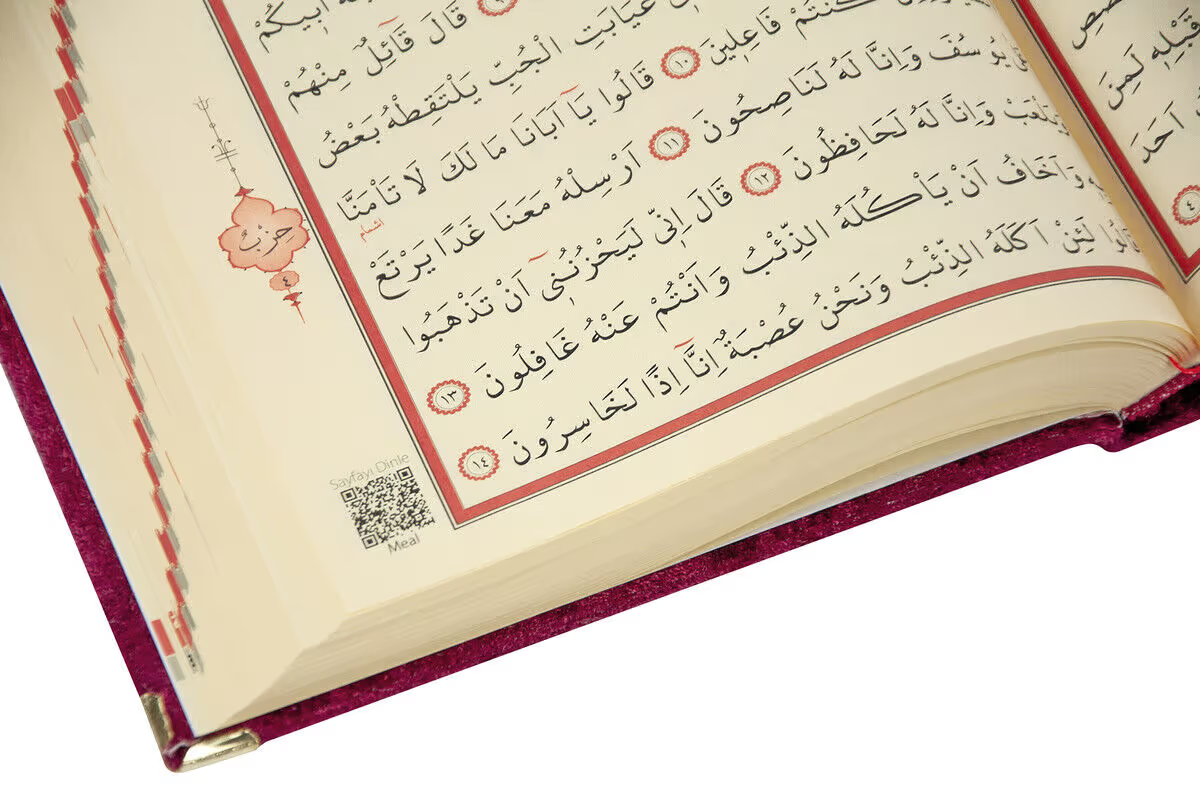 قَبْلِهٖ لَمِنَ
اَحَدَ
٤
اَبٖيكُمْ
قَالَ قَٓائِلٌ مِنْهُمْ
غَيَابَتِ الْجُبِّ يَلْتَقِطْهُ بَعْضُ
كُنْتُمْ فَاعِلٖينَ ١٠ قَالُوا يَٓا اَبَانَا مَا لَكَ لَا تَأْمَنَّا
اشمام
يُوسُفَ وَاِنَّا لَهُ لَنَاصِحُونَ ١١ اَرْسِلْهُ مَعَنَا غَدًا يَرْتَعْ
وَيَلْعَبْ وَاِنَّا لَهُ لَحَافِظُونَ ١٢ قَالَ اِنّٖي لَيَحْزُنُنٖٓي اَنْ تَذْهَبُوا
بِهٖ وَاَخَافُ اَنْ يَأْكُلَهُ الذِّئْبُ وَاَنْتُمْ عَنْهُ غَافِلُونَ ١٣
قَالُوا لَئِنْ اَكَلَهُ الذِّئْبُ وَنَحْنُ عُصْبَةٌ اِنَّٓا اِذًا لَخَاسِرُونَ ١٤
حِزْبُ
٤
Sayfayı Dinle
Meal